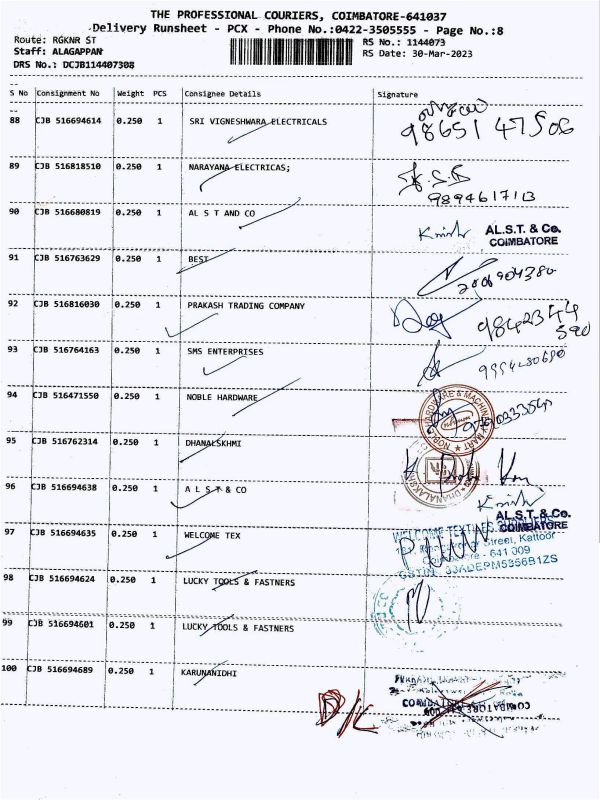 THE PROFESSIONAL COURIERS, COIMBATORE-641037
Delivery Runsheet - PCX - Phone No.:0422-3505555 - Page No.:8
Route: RGKNR ST
RS No.: 1144073
Staff: ALAGAPPAN
RS Date: 30-Mar-2023
DRS No.: DCJB114407308
S No Consignment No Weight PCS Consignee Details Signature
88 CJB 516694614 0.250 1 SRI VIGNESHWARA ELECTRICALS
98651 47506
89 CJB 516818510 0.250 1 NARAYANA ELECTRICAS;
9894617113
90 CJB 516680819 0.250 1 AL S T AND CO
AL.S.T. & Co.
COIMBATORE
91 CJB 516763629 0.250 1 BEST
92 CJB 516816030 0.250 1 PRAKASH TRADING COMPANY
9842344
590
93 CJB 516764163 0.250 1 SMS ENTERPRISES
94 CJB 516471550 0.250 1 NOBLE HARDWARE
HARDWARE & MACHINERY MART
95 CJB 516762314 0.250 1 DHANALSKHMI
DHANALAKSHMI
96 CJB 516694638 0.250 1 A L S T & CO
AL.S.T. & Co.
COIMBATORE
97 CJB 516694635 0.250 1 WELCOME TEX
WELCOME TEXTILES
Street, Kattoor
Coimbatore - 641 009
GSTIN: 33ADEPM5356B1ZS
98 CJB 516694624 0.250 1 LUCKY TOOLS & FASTNERS
99 CJB 516694601 0.250 1 LUCKY TOOLS & FASTNERS
100 CJB 516694689 0.250 1 KARUNANIDHI
D/L